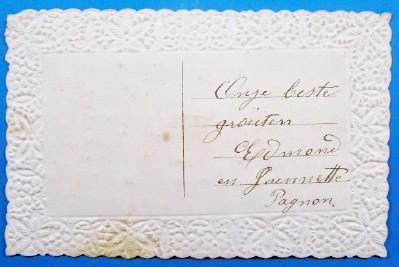 Onze beste
groeten
Edmond
en Jeannette
Pagnon.